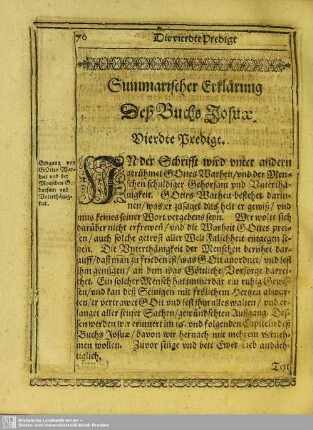 76
Die vierdte Predigt
Summarischer Erklärung
Deß Buchs Josuæ.
Vierdte Predigt.
Eingang von
GOttes War-
heit vnd der
Menschen Ge-
horsam vnd
Vnterthänig-
keit.
IN der Schrifft wird vnter andern
gerühmet GOttes Warheit/ vnd der Men-
schen schuldiger Gehorsam vnd Vnterthä-
nigkeit. GOttes Warheit bestehet darin-
nen/ was er zusaget das helt er gewiß/ vnd
mus keines seiner Wort vergebens seyn. Wer wolte sich
darüber nicht erfrewen/ vnd die Warheit GOttes prei-
sen/ auch solche getrost aller Welt Falschheit entgegen se-
tzen. Die Vnterthänigkeit der Menschen beruhet dar-
auff/ daß man zu frieden ist/ was GOtt anordnet/ vnd lest
ihm genügen/ an dem was Göttliche Vorsorge darrei-
chet. Ein solcher Mensch hat immerdar ein ruhig Gewis-
sen/ vnd kan deß Seinigen mit frölichem Hertzen abwar-
ten/ er vertrawet GOtt vnd lest ihn alles walten/ vnd er-
langet aller seiner Sachen/ gewündschten Außgang. Des-
sen werden wir erinnert im 15. vnd folgenden Capiteln deß
Buchs Josuæ/ davon wir hernach mit mehrem verneh-
men wollen. Zuvor singe vnd bete Ewer Lieb andäch-
tiglich.
Text